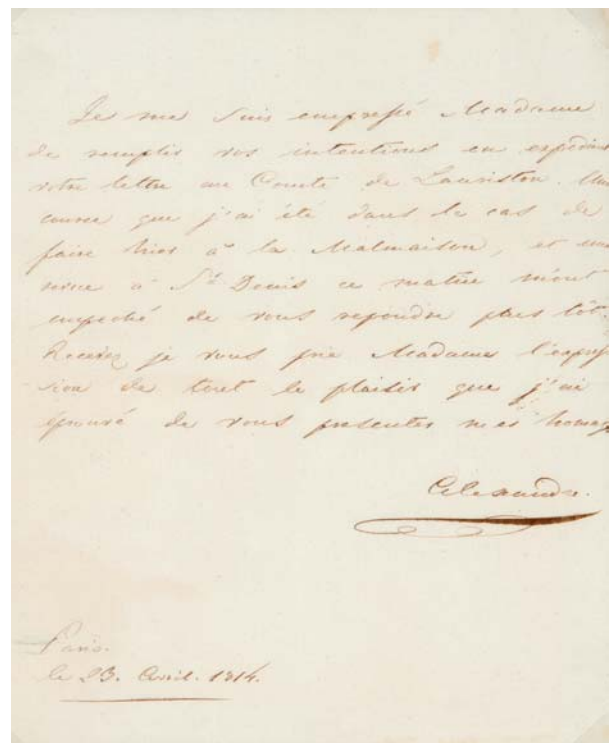 Je me suis empressé Madame
de remplir vos intentions en expédiant
votre lettre au Comte de Lauriston. Une
course que j'ai été dans le cas de
faire hier à la Malmaison, et une
revue à St Denis ce matin m'ont
empeché de vous repondre plus tôt.
Recevez je vous prie Madame l'expres
sion de tout le plaisir que j'ai
éprouvé de vous presenter mes homag
Alexandre.
Paris.
le 23. Avril. 1814.